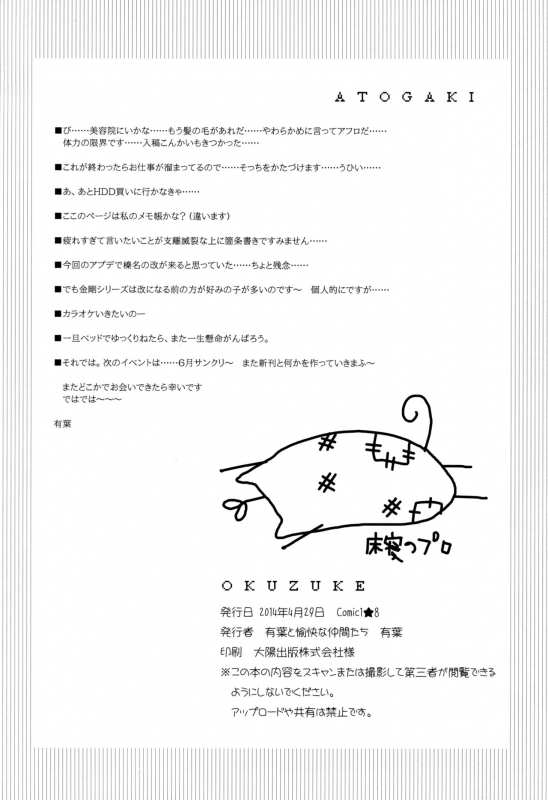 ATOGAKI
■び……美容院にいかな……もう髪の毛があれだ……やわらかめに言ってアフロだ……
体力の限界です……入稿こんかいもきつかった……
■これが終わったらお仕事が溜まってるので……そっちをかたづけます……うひい……
■あ、あとHDD買いに行かなきゃ……
■ここのページは私のメモ帳かな？（違います）
■疲れすぎて言いたいことが支離滅裂な上に箇条書きですみません……
■今回のアプデで榛名の改が来ると思っていた……ちょと残念……
■でも金剛シリーズは改になる前の方が好みの子が多いのです～　個人的にですが……
■カラオケいきたいのー
■一旦ベッドでゆっくりねたら、また一生懸命がんばろう。
■それでは。次のイベントは……6月サンクリ～　また新刊と何かを作っていきまふ～
またどこかでお会いできたら幸いです
ではでは～～～
有葉
床寝のプロ
OKUZUKE
発行日 2014年4月29日　Comic1★8
発行者　有葉と愉快な仲間たち　有葉
印刷　大陽出版株式会社様
※この本の内容をスキャンまたは撮影して第三者が閲覧できる
ようにしないでください。
アップロードや共有は禁止です。